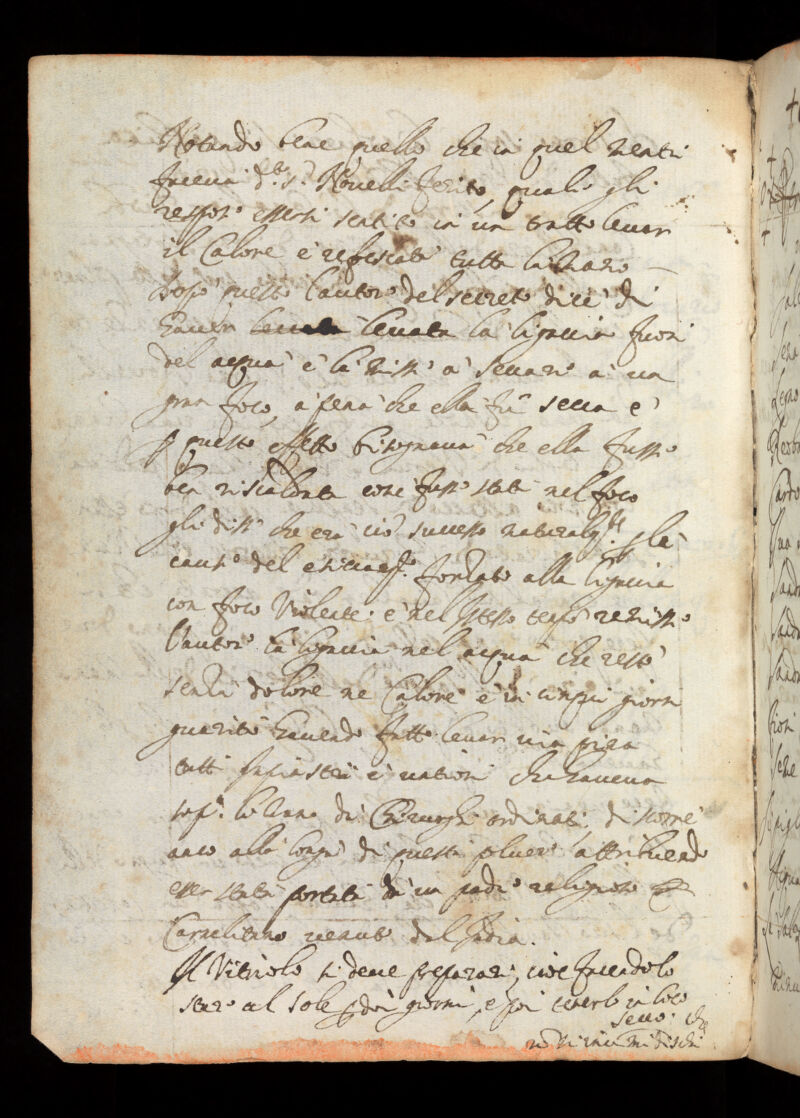 Notando bene quello che in quel mentre
faceva d.to S.r Howelli ferito, quale gli
rispose essersi sentito in un tratto levar
il Calore e refrescata tutta la mano
Dopo questo l'autore del secreto dice di
haver levata la ligaccia fuori
del acqua e la misse a seccare a un
gran foco, a pena che ella fu secca e
p questo effetto bisognava che ella fusse
ben riscaldata come fusse stata nel foco
gli disse che era ciò successo naturalm.te p la
causa del
con foco Violente e nel istesso tempo remisse
l'autore la ligaccia nel acqua che restò
senza dolore ne Calore e in cinque giorni
guarito havendo fatto levar via prima
tutti inpiastri e untioni che haveva
sop.a la mano da Chirurghi ordinati, discorre
anco alla longa di questa polvere attribuendo
esser stata portata da un padre religioso
Carmelitano venuto dal India.
Il Vitriolo si deve preparare, cioè facendolo
stare al sole p doi giorni, e poi tenerlo in loco
secco. che
non